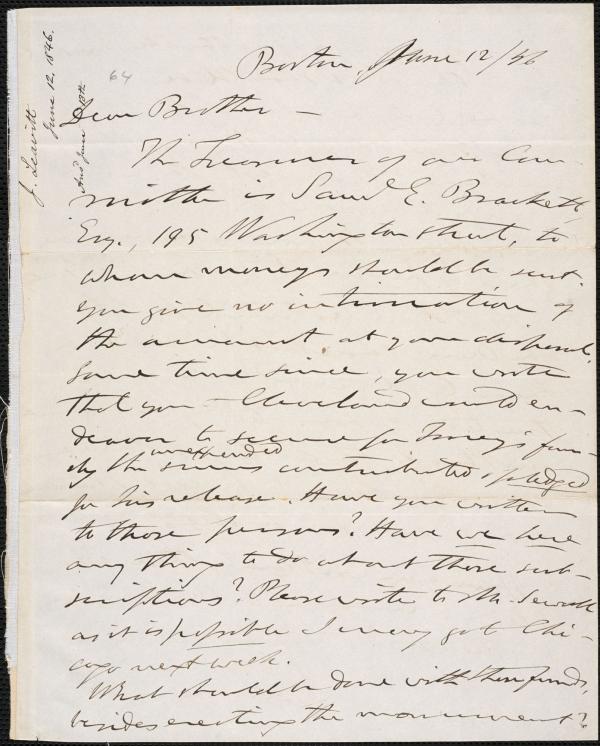 J. Leavitt
June 12, 1846.
And June 13th
64
Boston, June 12/46
Dear Brother —
The Treasurer of our Com-
mittee is Saml E. Brackett,
Esq., 195 Washington Street, to
whom moneys should be sent.
You give no intimation of
the amount at your disposal.
Some time since, you wrote
that you & Cleveland would en-
deavor to secure for Torrey's fam-
ily the unexpended sums contributed & pledged
for his release. Have you written
to those persons? Have we here
any thing to do about those sub-
scriptions? Please write to Mr. Sewall
as it is possible I may go to Chi-
cago next week.
What should be done with these funds,
besides erecting the monument?